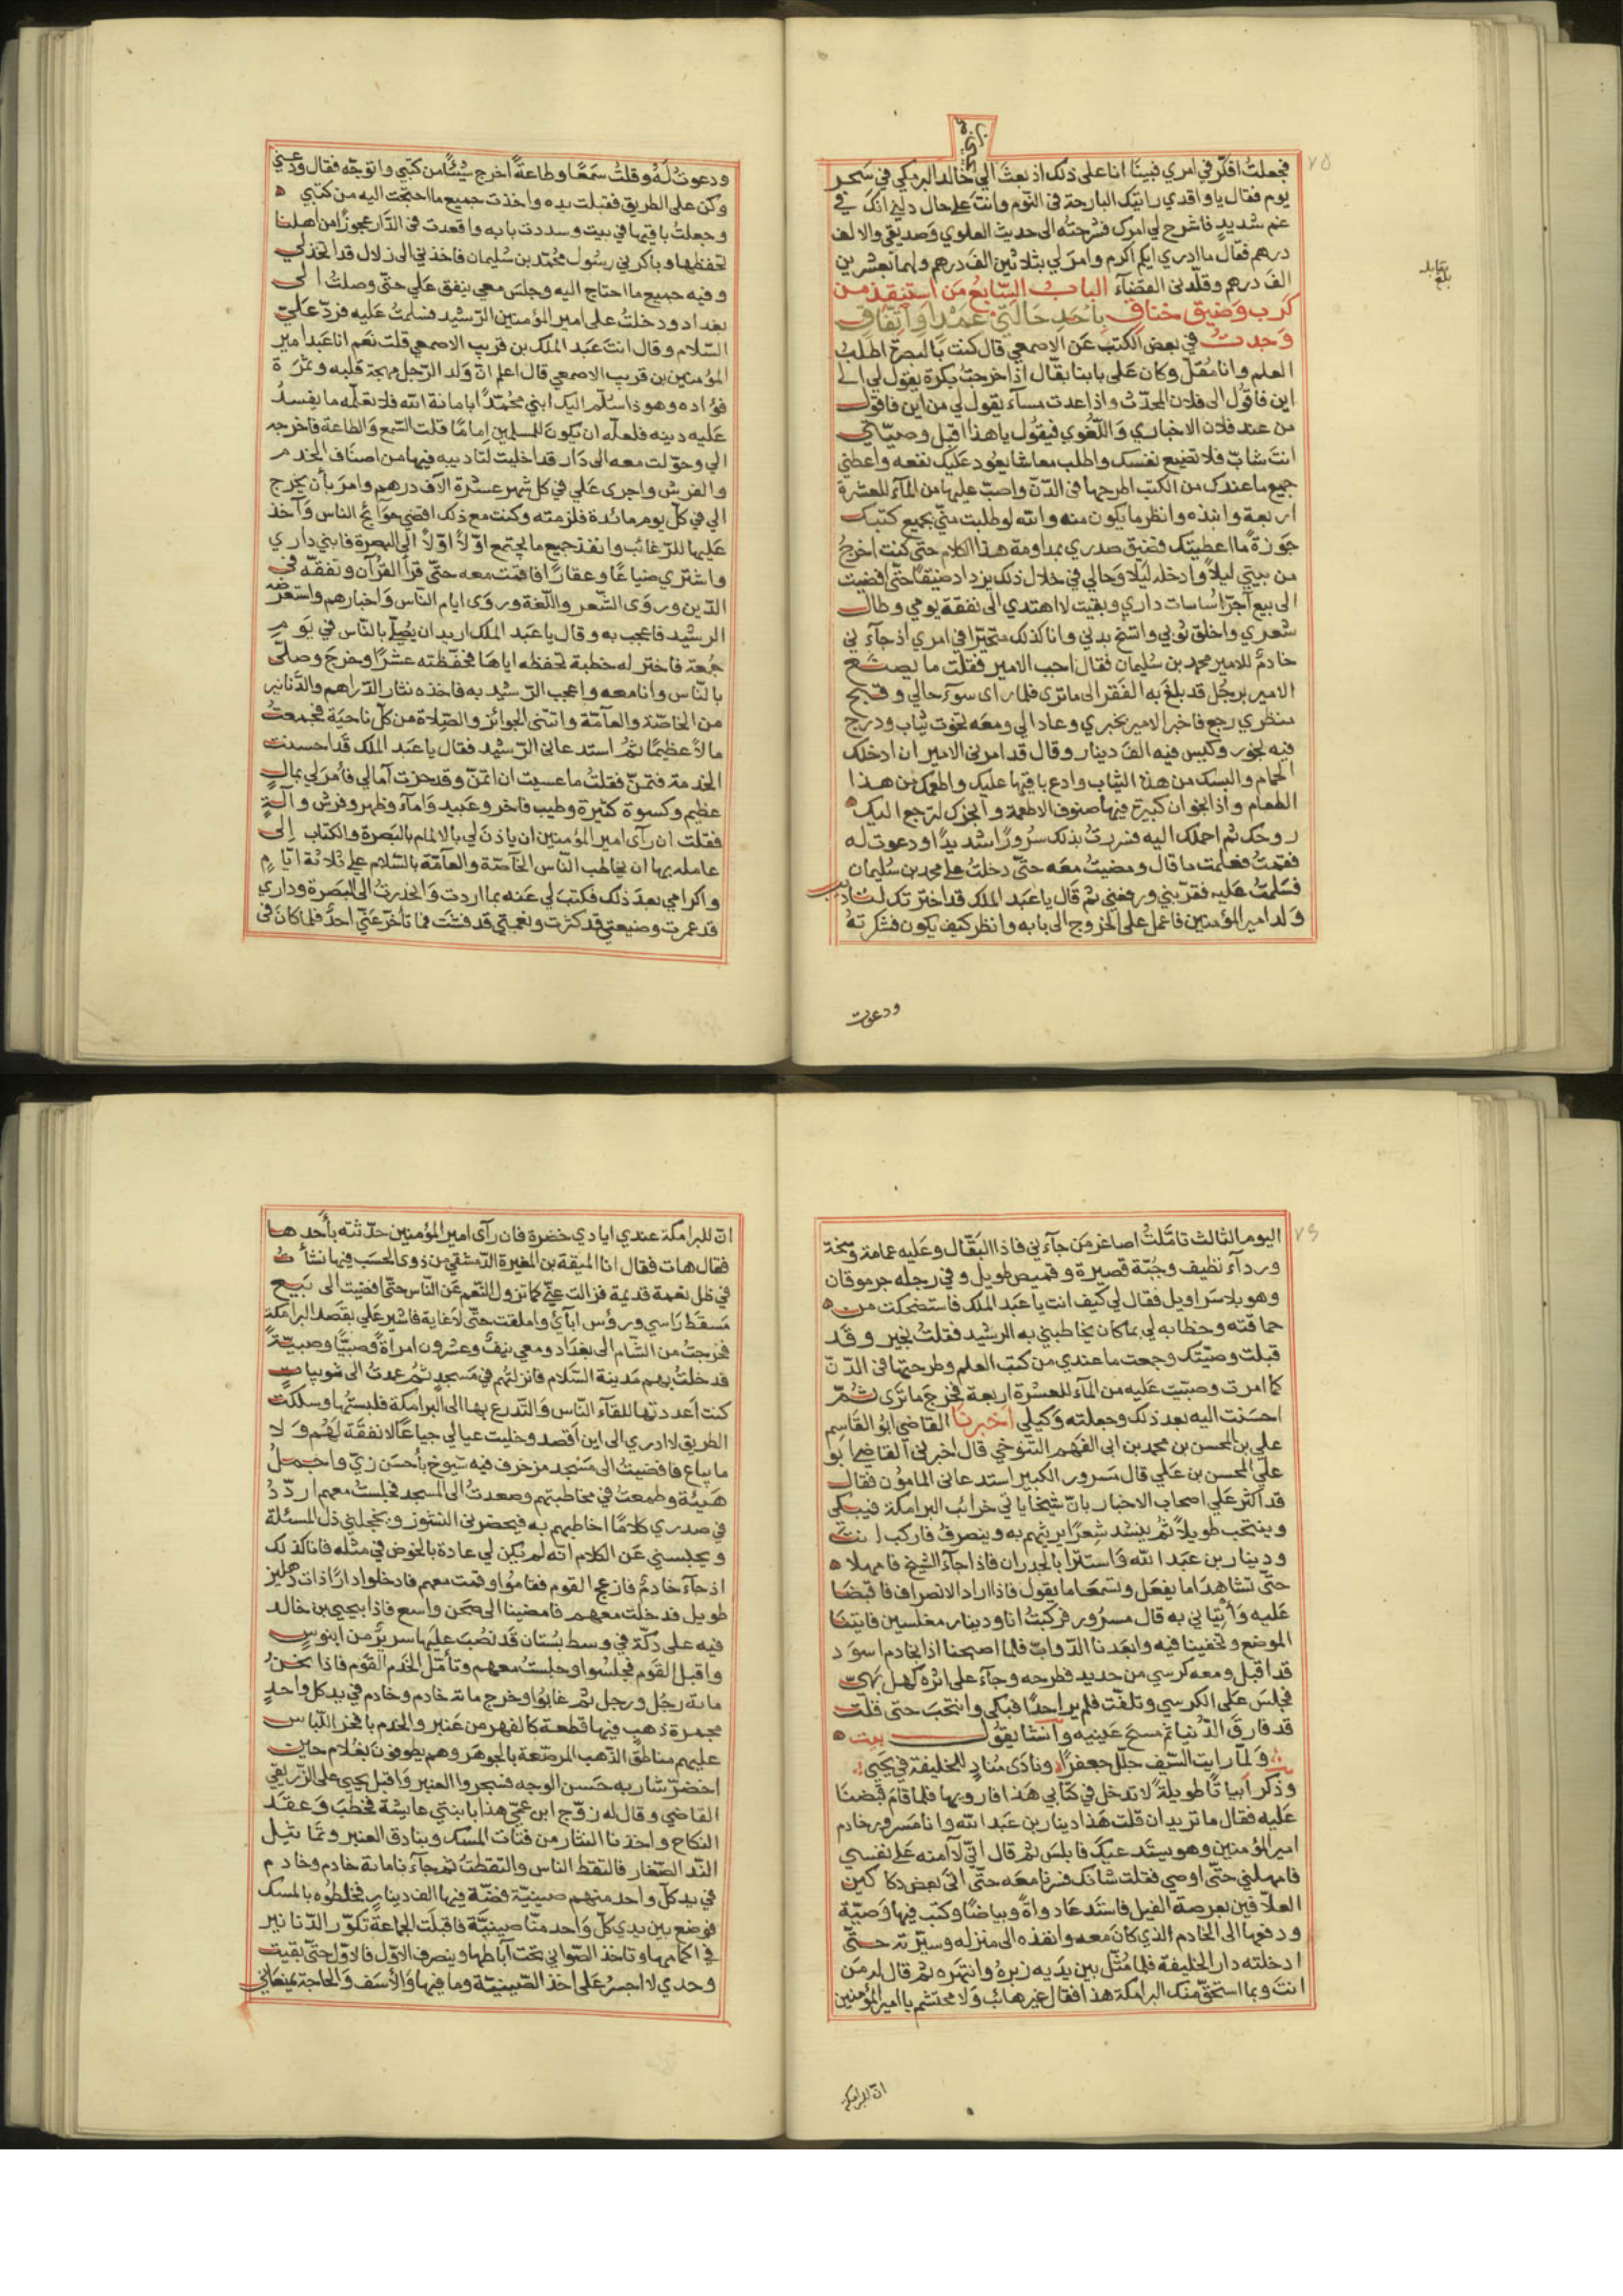 فجعلتُ افكّر في امري فبينَا انا على ذلك اذ بعثَ اليّ خالد البرمكي في سَحر
يوم فقال يا واقدي رايتك البارحة في النّوم وانتَ على حال دلّني انكَ في
غم شديد فاشرح لي امرك فشرحتُه الى حديث العلوي وَصديقي والالف
درهم فقال ما ادري ايكم اكرم وامرَ لي بثلاثين الفَ درهم ولهما بعشرين
الفَ درهم وقلّدني القضَآء البابُ السَّابعُ مَن اسْتنِقِذَ من
كَربٍ وَضيق خناقٍ بِاَحَدِ حَالَتَيْ عَمْدٍ اَوِ اتّفَاقٍ
وَجدتُ في بعض الكتب عَن الاصمعي قال كنت بالبصرة اطلبُ
العلم وانا مُقلّ وكان عَلى بابنا بقّال اذا خرجتُ بكرة يقول لي الى
اين فاقولُ الى فلان المحدّث واذا عدت مسآء يقول لي من اين فاقول
من عند فلان الاخباري وَاللّغوي فيقُول يا هذا اقبل وصيّتي
انتَ شابّ فلا تضيع نفسك واطلب معاشا يعُود عَليكَ نفعه واعطني
جميع ما عندك من الكتب اطرحها في الدّنّ واصبّ عليها من المآء للعشرة
اربعة وانبذه وانظر ما يكون منه والله لو طلبت منّي بجميع كتبك
جَوزةً ما اعطيتك فضيق صدري بمداومة هذا الكلام حتّى كنت اخرجُ
من بيتي ليلاً وادخله لَيلا وَحالي في خلال ذلك يزداد ضيقًا حتّى افضيت
الى بيع آجرّ اسَاسات داري وبقيت لا اهتدي الى نفقة يومي وطال
شعري واخلق ثوبي واتسخ بدني وانا كذلك متحيّرا في امري اذ جآء ني
خادمٌ للامير محمد بن سُليمان فقال اَجب الامير فقلت ما يصنَع
الامير برجُل قد بلغَ به الفَقر الى ما ترى فلما راى سوءَ حالي وقبح
منظري رجع فاخبرَ الامير بخبري وعاد الي ومعَه تخوت ثياب ودرج
فيه بخور وكيس فيه الفَ دينار وقال قد امرني الامير ان ادخلك
الحمام والبسك من هذه الثياب وادع باقيها عليك واطعمك من هذا
الطعام واذا بخوان كبيرة فيها صنوف الاطعمة وابخرك لترجع اليك
روحك ثم احملك اليه فسررتُ بذلك سُرورًا شديدًا ودعوت له
فقمتُ فعلمت ما قال ومضيتُ معَه حتّى دخلتُ على محمد بن سُليمان
فسَلمتُ عَليه فقرّبني ورفعني ثم قال يا عَبد الملك قد اخترتك لتادب
وَلد امير المؤمنين فاعمل على الخروج الى بابه وانظر كيف يكون فشكرتهُ
ودعوت
ودعوتُ لَهُ وقلتُ سَمعًا وطاعةً اخرج شيئًا من كتبي واتوجّه فقال ودّعني
وكن على الطريق فقبلت يده واخذت جميع ما احتجت اليه من كتبي
وجعلتُ باقيها في بيت وسددت بابه واقعدت في الدَّار عجوزًا من اهلنا
تحفظها وباكرني رسُول محُمّد بن سُليمان فاخذني الى زلال قد اتخذ لي
وفيه جميع ما احتاج اليه وجلسَ معي ينفق عَلي حتّى وصلتُ الى
بغداد ودخلتُ على امير المؤمنين الرّشيد فسَلمتُ عَليه فردّ عَليّ
السّلام وقال انتَ عَبد الملك بن قريب الاصمعي قلت نعَم انا عَبد امير
المؤمنين بن قريب الاصمعي قال اعلم انّ وَلد الرّجل مهجة قلبه وثمرَة
فؤاده وهو ذا اسَلّم اليك ابني محُمّدًا بامانة الله فلا تعَلّمه ما يفسدُ
عَليه دينه فلعلّه ان يكونَ للمسلمين اِمامًا قلت السَّمع وَالطاعة فاخرجه
الي وحوّلت معه الى دَار قد اخليت لتاديبه فيها من اصنَاف الخدم
والفرش واجرى عَلي في كل شهر عشرة الآف درهم وامرَ بأن يخرج
الي في كلّ يوم مائدة فلزمته وكنت مع ذلك اقضي حوَائج الناس وَآخذ
عَليها للرّغائب وانفذ جميع ما يجتمع اوّلاً اوّلاً الى البصرة فابني داري
واشتري ضياعًا وعقارًا فاقمت معه حتّى قرأ القرآن وتفقّه في
الدّين وروَى الشّعر واللّغة وروَى ايام النّاس وَاخبارهم واستعرَضه
الرشيد فاعجب به وقال يا عَبد الملك اريد ان يصُلّي بالنّاس في يوم
جُمعة فاختر له خطبة تحفظه اياهَا فحفّظته عشرًا وخرجَ وصلّى
بالنّاس وانا معه واعجب الرّشيد به فاخذه نثار الدّراهم والدَّنانير
من الخاصّة والعآمّة واتتنى الجوائز والصّلاة من كلّ ناحيَة فجمعتُ
مالاً عظيمًا ثمُ استدعاني الرّشيد فقال يا عَبد الملك قَد احسنت
الخدمة فتمنّ فقلتُ ما عسيت ان اتمنّ وقد حزت آمالي فأمرَ لي بمالٍ
عظيم وكسوة كثيرة وطيب فاخر وعَبيد وَامآء وظهر وفرش وآلةٍ
فقلت ان رآى امير المؤمنين ان ياذن لي بالالمام بالبَصرة والكتاب اِلى
عامله بها ان يخاطب النّاس الخآصّة والعآمّة بالسّلام علي ثلاثة ايّامٍ
واكرامي بعدَ ذلك فكتبَ لي عَنه بما اردت وَانحدرتُ الى البصَرة وداري
قد عمرت وضيعتي قد كثرت ونعمتي قد فشت فما تأخّر عَنّي احدٌ فلما كان في
اليوم الثالث تامَّلتُ اصاغر مَن جآءني فاذا البَقّال وعَليه عمامة وسخة
وردآء نظيف وجُبّة قصيرة وقميص طويل وفي رجله جرموقان
وهو بلا سَراويل فقال لي كيف انت يا عَبد الملك فاستضحكت من
حماقته وخطابه لي بما كان يخاطبني به الرشيد فقلتُ بخير وقَد
قبلت وصيّتك وجمعت ما عندي من كتب العلم وطرحتها في الدّنّ
كما امرت وصبّبت عَليه من المآء للعشرة اربعة فخرجَ ما ترَى ثمّ
احسَنت اليه بعد ذلك وجعلته وَكيلي اخبرنا القاضي ابوُ القَاسِم
علي بن المحسن بن محمد بن ابى الفَهم التنوخي قال اخبرني القاضي ابو
عليّ المحسن بن عَلي قال مَسرور الكبير استدعاني المامؤن فقال
قد اكثر عَلي اصحاب الاخبار بانّ شيخًا ياتي خرائب البرامكة فيبكي
وينتحب طويلاً ثمُ ينشد شِعرًا يرثيهم به وينصرفُ فاركب انتَ
ودينار بن عَبد الله وَاستترَا بالجدران فاذا جآءَ الشيخ فامهلا
حتّى تشاهدَا ما يفعَل وتسمعَا ما يقول فاذا اراد الانصراف فاقبضَا
عَليه وَأْتِيَاني به قال مسرُور فركبتُ انا ودينار مغلسين فاتينَا
الموضع وتخفينا فيه وابعَدنا الدّوابّ فلما اصبحنا اذا بخادم اسوَد
قد اقبل ومعه كرسي من حديد فطرحه وجآءَ على اثره كهل بَهيّ
فجلسَ عَلى الكرسي وتلفّت فلم ير احدًا فبكى وانتحبَ حتى قلت
قد فارقَ الدّنيا ثم مسحَ عَينيه وَانشا يقوُل بيت
وَلمّا رايت السّيف جلّل جعفرًا ونادَى مُنادٍ للخليفة في يحَيي
وذكر ابيَاتًا طويلةً لا تدخل في كتابي هَذا فارويها فلما قامَ قبضنَا
عَليه فقال ما تريد ان قلت هَذا دينار بن عَبد الله وانا مَسرور خادم
امير المؤمنين وهو يستَدعيكَ فابلسَ ثم قال انّي لا آمنه عَلى نفسي
فامهلني حتّى اوصي فقلت شانك فسَرنا معَه حتّى اتى بعض دكاكين
العلاّفين بعرصة الفيل فاستَدعَا دواةً وبياضًا وكتب فيها وَصيّة
ودفعها الى الخادم الذي كانَ معَه وانفذه الى منزله وسيرّته حتّى
ادخلته دار الخليفة فلما مُثّل بين يدَيه زبرهُ وانتهَره ثم قال له مَن
انتَ وبما استحقّ منك البرامكة هذا فقال غير هائب وَلا محتشم يا امير المؤمنين
انّ للبرامكة
انّ للبرامكة عندي ايادي خضرة فان رآى امير المؤمنين حدّثته بأحَدها
فقال هات فقال انا المُيقة بن المغيرة الدّمشقي من ذوى الحسَب فيها نشأتُ
في ظل نعمة قديمة فزالت عنّي كما تزول النّعم عَن النّاس حتّى افضيت الى بَيع
مَسقط رَاسي ورؤس ابآئي واملقت حتّى لا غاية فاشير عَلي بقصد البرامكة
فخرجتُ من الشّام الى بغدَاد ومعي نيفٌ وعشرون امرأة وَصبيًّا وصبيّةً
فدخلتُ بهم مَدينة السّلام فانزلتهُم في مَسجدٍ ثمُ عمدتُ الى ثويبات
كنت اَعددتها للقآء النّاس وَالتّدرع بها الى البرامكة فلبستُها وسلكت
الطريق لا ادري الى اين اَقصد وخليت عيالي جياعًا لا نفقَة لهَمُ وَلا
ما يباع فافضيتُ الى مَسْجد مزخرف فيه شيوخ بأحسَن زيّ واجملُ
هَيئة وطمعتُ في مخاطبتهم وصعدتُ الى المسجد فجلستُ معهم اردّدُ
في صدري كلامًا اخاطبهم به فيحضرني النشوز ويخجلني ذل المسئلة
ويحبسني عَن الكلام انّه لم يكن لي عادة بالخوض في مثله فانا كذلك
اذ جآءَ خادمٌ فازعج القوم فقامُوا وقمت معهم فادخلوا دارًا ذات دهليز
طويل فدخلت معهم فامضينا الى صَحن واسع فاذا بيحيى بن خالد
فيه على دكّة في وسط بُستان قَد نصُبَ عليَها سريرٌ من ابنوس
واقبل القَوم فجلسُوا وجلستُ معهم وتأمّل الخَدم القَوم فاذا نحنُ
مائة رجُل ورجل ثم غابوُا وخرج مائة خادم وخادم في يد كل واحدٍ
مجمرة ذهبٍ فيها قطعة كالفهر من عَنبر والخدم بافخر اللّباس
عليهم مناطق الذّهب المرصّعة بالجوهَر وهم يطوفونَ بغُلام حاين
اخضرّ شاربه حَسن الوجه فسَجروا العنبر وَاقبل يحيى على الزّريقي
القاضي وقال له زوّج ابن عمّي هذا بابنتي عائشة فخطبَ وَعقَد
النكاح واخذنا النثار من فتات المسك وبنادق العنبر وتماثيل
النّد الصّغار فالتقط الناس والتقطتُ ثم جآءنا مائة خادم وخادم
في يد كلّ واحد منهم صينيّة فضّة فيها الف دينار فخلطوُه بالمسك
فوضع بين يدي كلّ وَاحد منّا صينيَّة فاقبلت الجماعَة تكوّر الدّنانير
في اكمامها وتاخذ الصّواني تحت آباطها وينصرف الاوّل فالاوّل حتّى بقيت
وحدي لا اجسرُ عَلى اخذ الصّينيّة وما فيها وَالأسَف وَالحاجة يمنعَاني